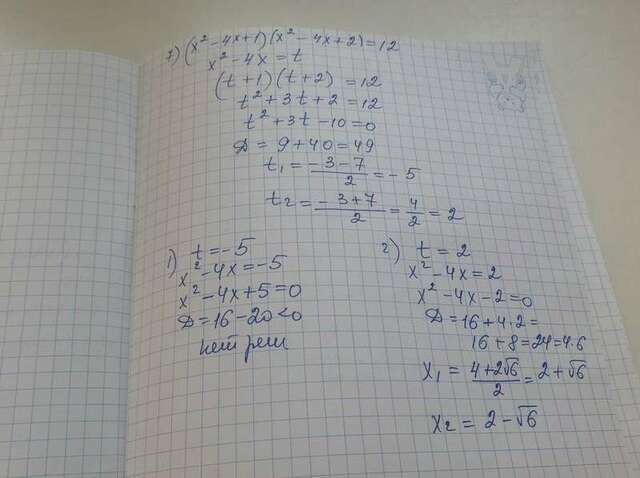 7) (x² - 4x + 1)(x² - 4x + 2) = 12
x² - 4x = t
(t + 1)(t + 2) = 12
t² + 3t + 2 = 12
t² + 3t - 10 = 0
D = 9 + 40 = 49
t₁ = (-3 - 7)/2 = -5
t₂ = (-3 + 7)/2 = 4/2 = 2
1) t = -5
x² - 4x = -5
x² - 4x + 5 = 0
D = 16 - 20 < 0
нет реш
2) t = 2
x² - 4x = 2
x² - 4x - 2 = 0
D = 16 + 4·2 =
16 + 8 = 24 = 4·6
x₁ = (4 + 2√6)/2 = 2 + √6
x₂ = 2 - √6